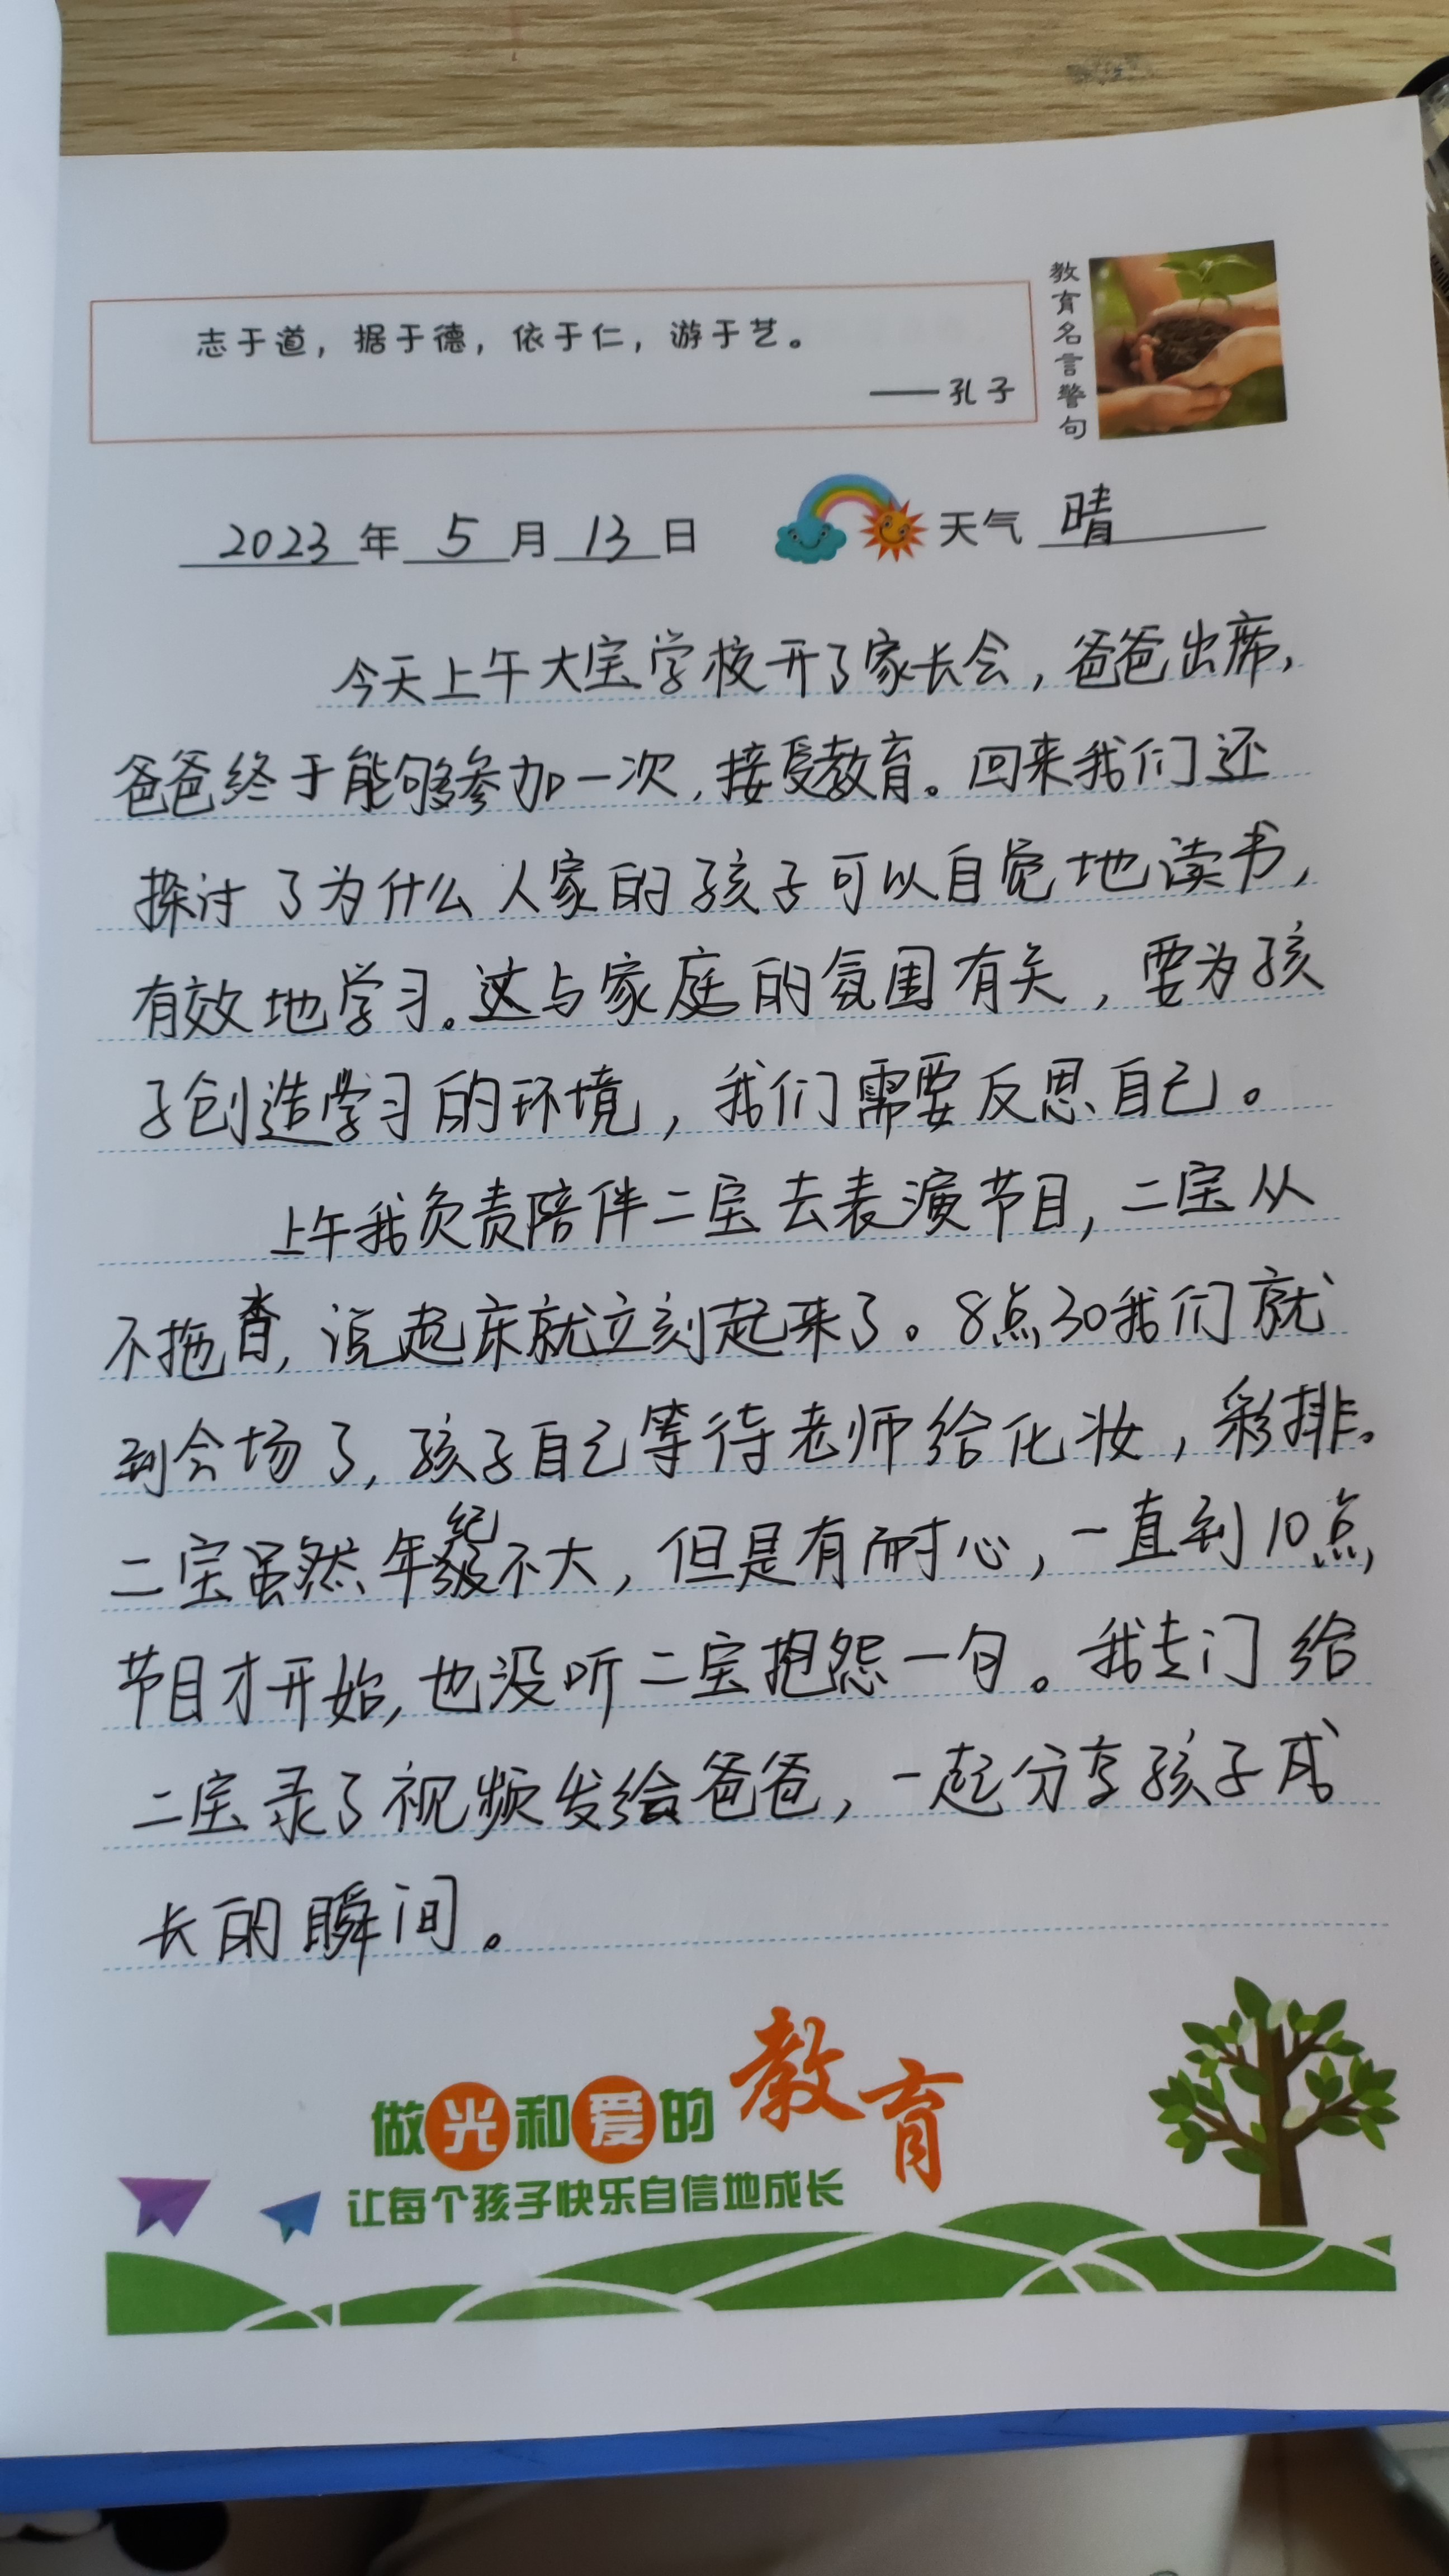 志于道，据于德，依于仁，游于艺。
——孔子
教育名言警句
2023年5月13日 天气 晴
今天上午大宝学校开了家长会，爸爸出席，
爸爸终于能够参加一次，接受教育。回来我们还
探讨了为什么人家的孩子可以自觉地读书，
有效地学习。这与家庭的氛围有关，要为孩
子创造学习的环境，我们需要反思自己。
上午我负责陪伴二宝去表演节目，二宝从
不拖沓，说起床就立刻起来了。8点30我们就
到会场了，孩子自己等待老师给化妆，彩排。
二宝虽然年纪不大，但是有耐心，一直到10点，
节目才开始，也没听二宝抱怨一句。我专门给
二宝录了视频发给爸爸，一起分享孩子成
长的瞬间。
做光和爱的教育
让每个孩子快乐自信地成长